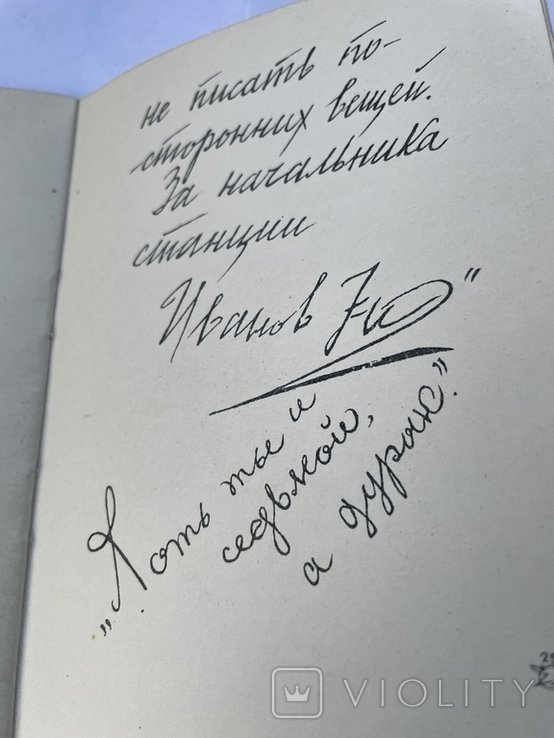 не писать по-
сторонних вещей.
За начальника
станции
Иванов 7-й"
"Хоть ты и
седьмой,
а дурак."
VIOLITY